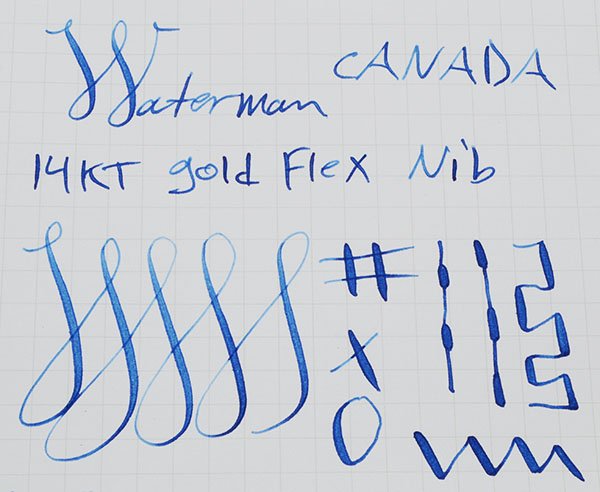 Waterman CANADA
14KT gold Flex Nib
#
X
O